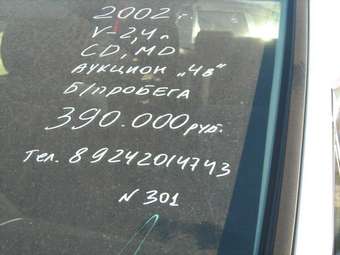 2002 г.
V-2,4л
CD, MD
АУКЦИОН „4в"
Б/ПРОБЕГА
390.000 руб.
Тел. 89242014743
N 301